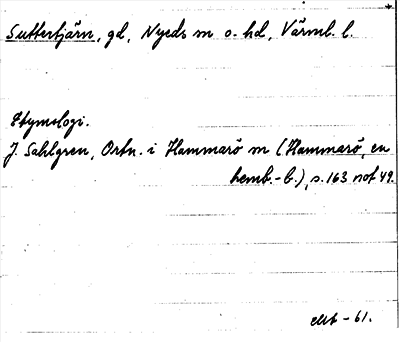 Suttertjärn, gd, Nyeds sn o. hd, Värml. l.
Etymologi.
J. Sahlgren, Ortn. i Hammarö sn (Hammarö, en
hemb.-b.), s. 163 not 49.
-61.